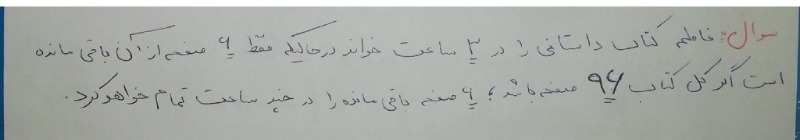 سوال: فاطمه کتاب داستانی را در ۳ ساعت خواند درحالیکه فقط ۶ صفحه از آن باقی مانده
است اگر کل کتاب ۹۶ صفحه باشد، ۶ صفحه باقی مانده را در چند ساعت تمام خواهد کرد.